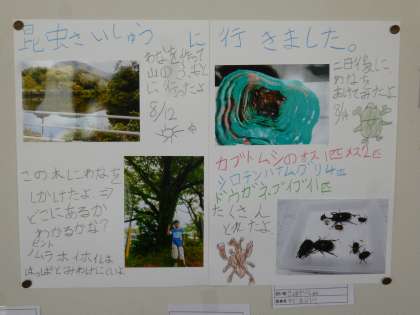 昆虫さいしゅうに
行きました。
わなを作って
山の
に行ったよ
8/12
二日後に
わなを
あけてみたよ
8/14
この木にわなを
しかけたよ⇒
どこにあるか
わかるかな?
ヒント
ノムラホイホイは
はっぱとみわけにくいよ
カブトムシのオス1匹メス2匹
シロテンハナムグリ4匹
ドウガネブイブイ1匹
たくさん
とれたよ